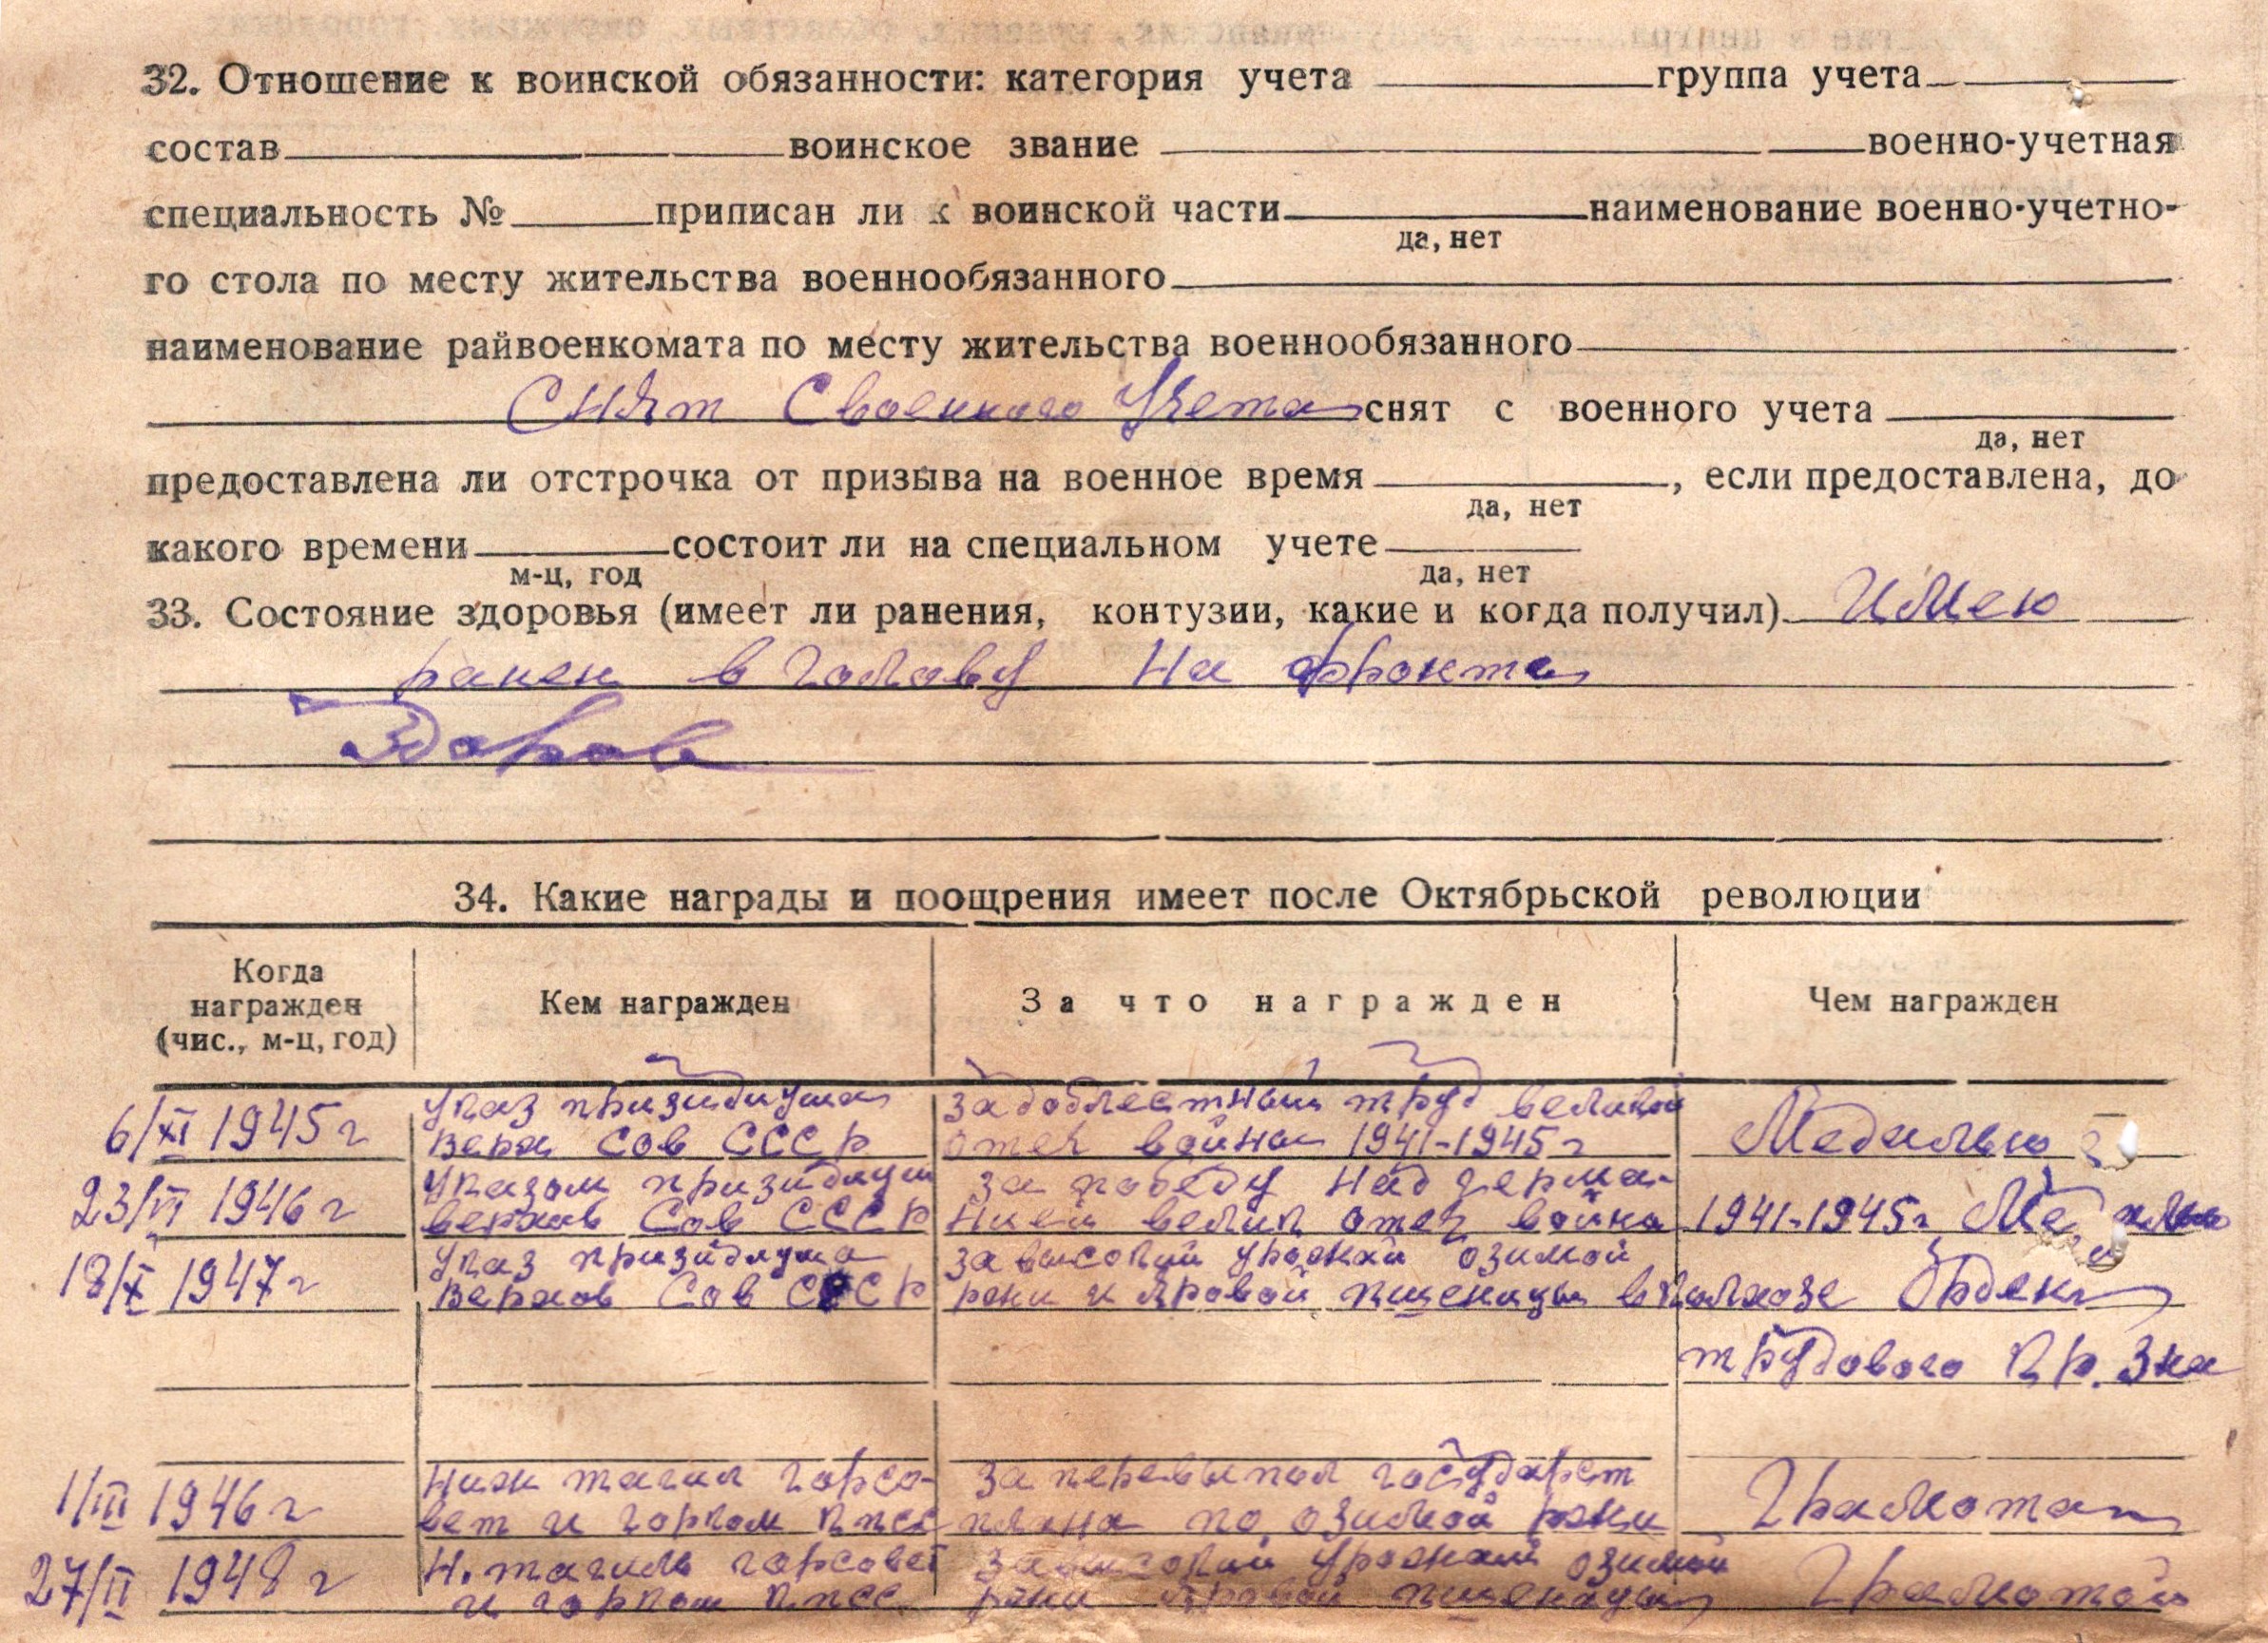 32. Отношение к воинской обязанности: категория учета группа учета
состав воинское звание военно-учетная
специальность № приписан ли к воинской части наименование военно-учетно-
да, нет
го стола по месту жительства военнообязанного
наименование райвоенкомата по месту жительства военнообязанного
Снят С военного Учета снят с военного учета
да, нет
предоставлена ли отстрочка от призыва на военное время , если предоставлена, до
да, нет
какого времени состоит ли на специальном учете
м-ц, год да, нет
33. Состояние здоровья (имеет ли ранения, контузии, какие и когда получил) Имею
ранен в голову На фронте
Здоров
34. Какие награды и поощрения имеет после Октябрьской революции
Когда
награжден
(чис., м-ц, год)
Кем награжден
За что награжден
Чем награжден
Указ призидиума За доблестный труд великой
6/XI 1945 г Верх Сов СССР отеч война 1941-1945 г Медалью
Указом призидиум за победу Над герма-
23/VI 1946 г верхов Сов СССР Нией велик отеч война 1941-1945 г Медалью
Указ призидиума за высокий урожай озимой
18/X 1947 г Верхов Сов СССР ржи и яровой пшеницы в колхозе Орден
трудового Кр. Зна
Ниж тагил горсо- За перевыпол государст
1/III 1946 г вет и горком КПСС плана по озимой ржи Грамота
Н. тагиль горсовет За высокий урожай озимой
27/II 1948 г и горком КПСС ржи яровой пшеницы Грамотой